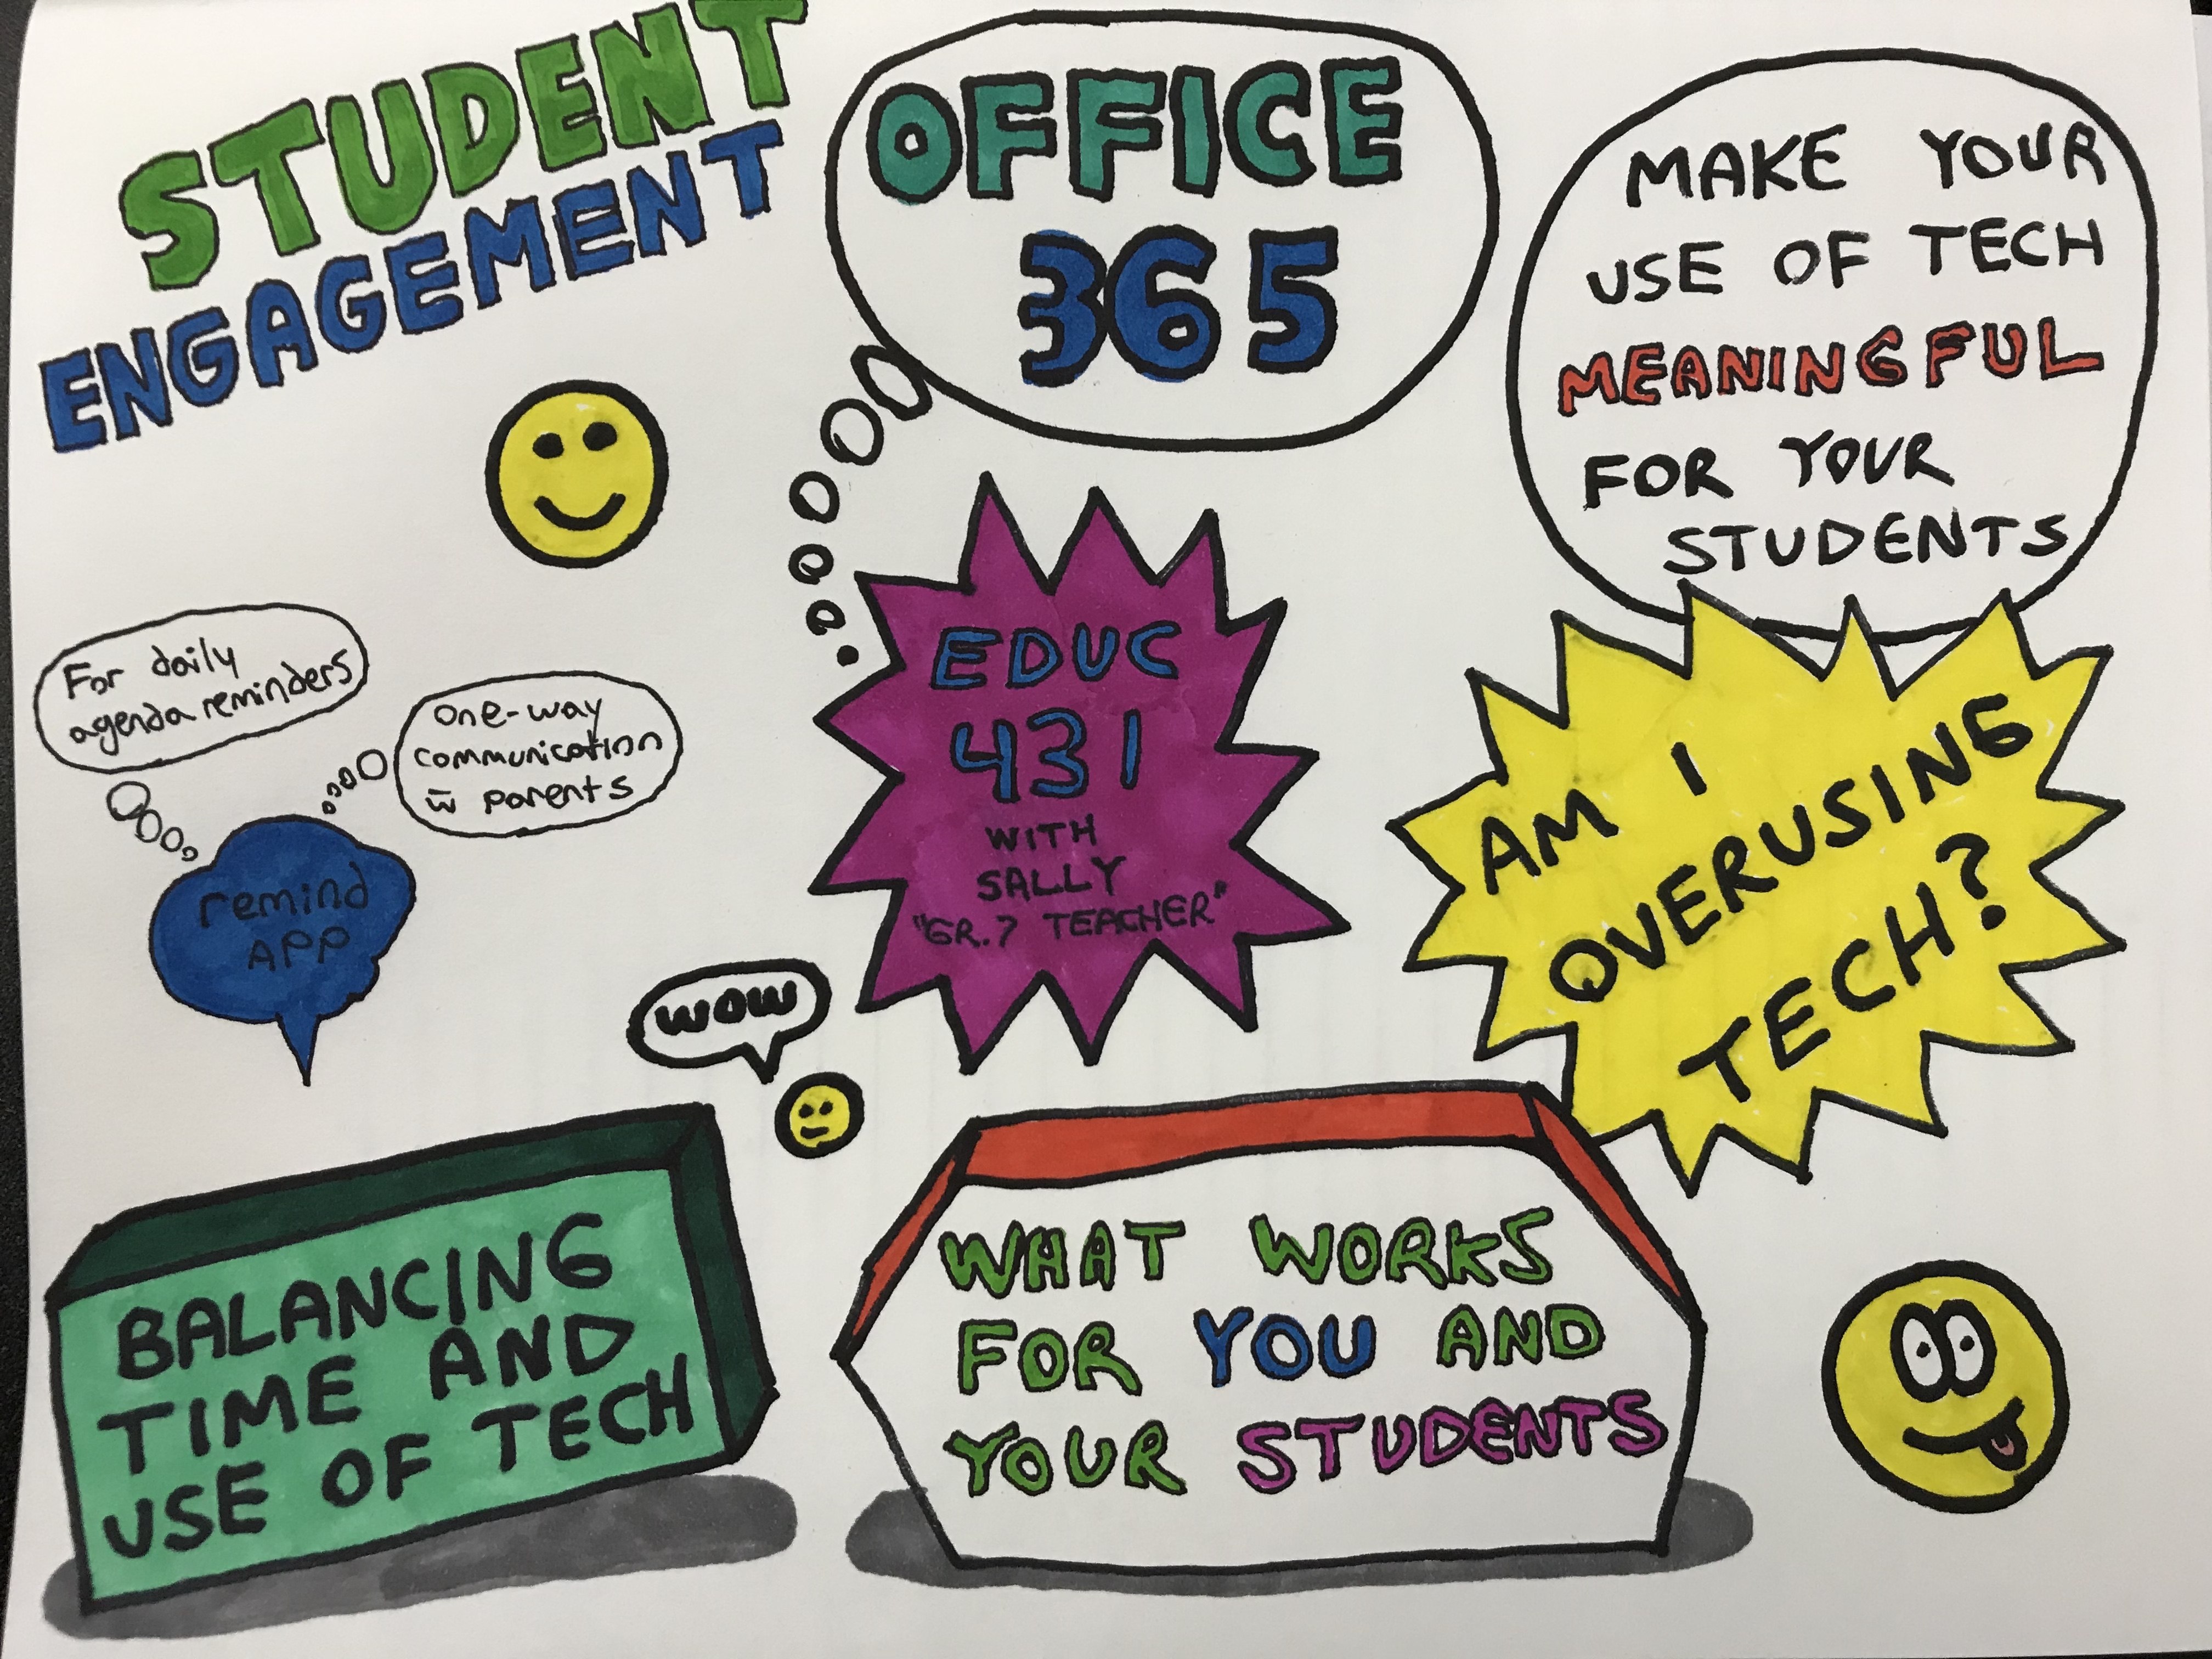 STUDENT
ENGAGEMENT
OFFICE
365
MAKE YOUR
USE OF TECH
MEANINGFUL
FOR YOUR
STUDENTS
For daily
agenda reminders
One-way
communication
w̄ parents
remind
APP
EDUC
431
WITH
SALLY
"GR.7 TEACHER"
AM I
OVERUSING
TECH?
WOW
BALANCING
TIME AND
USE OF TECH
WHAT WORKS
FOR YOU AND
YOUR STUDENTS